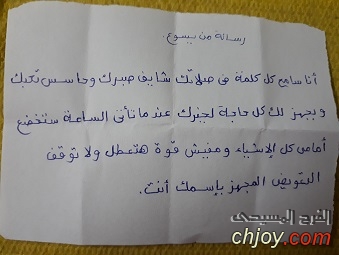 رسالة من يسوع.
أنا سامع كل كلمة في صلاتك شايف صبرك وحاسس تعبك
وبجهز لك كل حاجة لخيرك عندما تأتي الساعة ستخضع
أمامي كل الأشياء ومفيش قوة هتعطل ولا توقف
التعويض المجهز بإسمك أنت.
الفرح المسيحى
chjoy.com